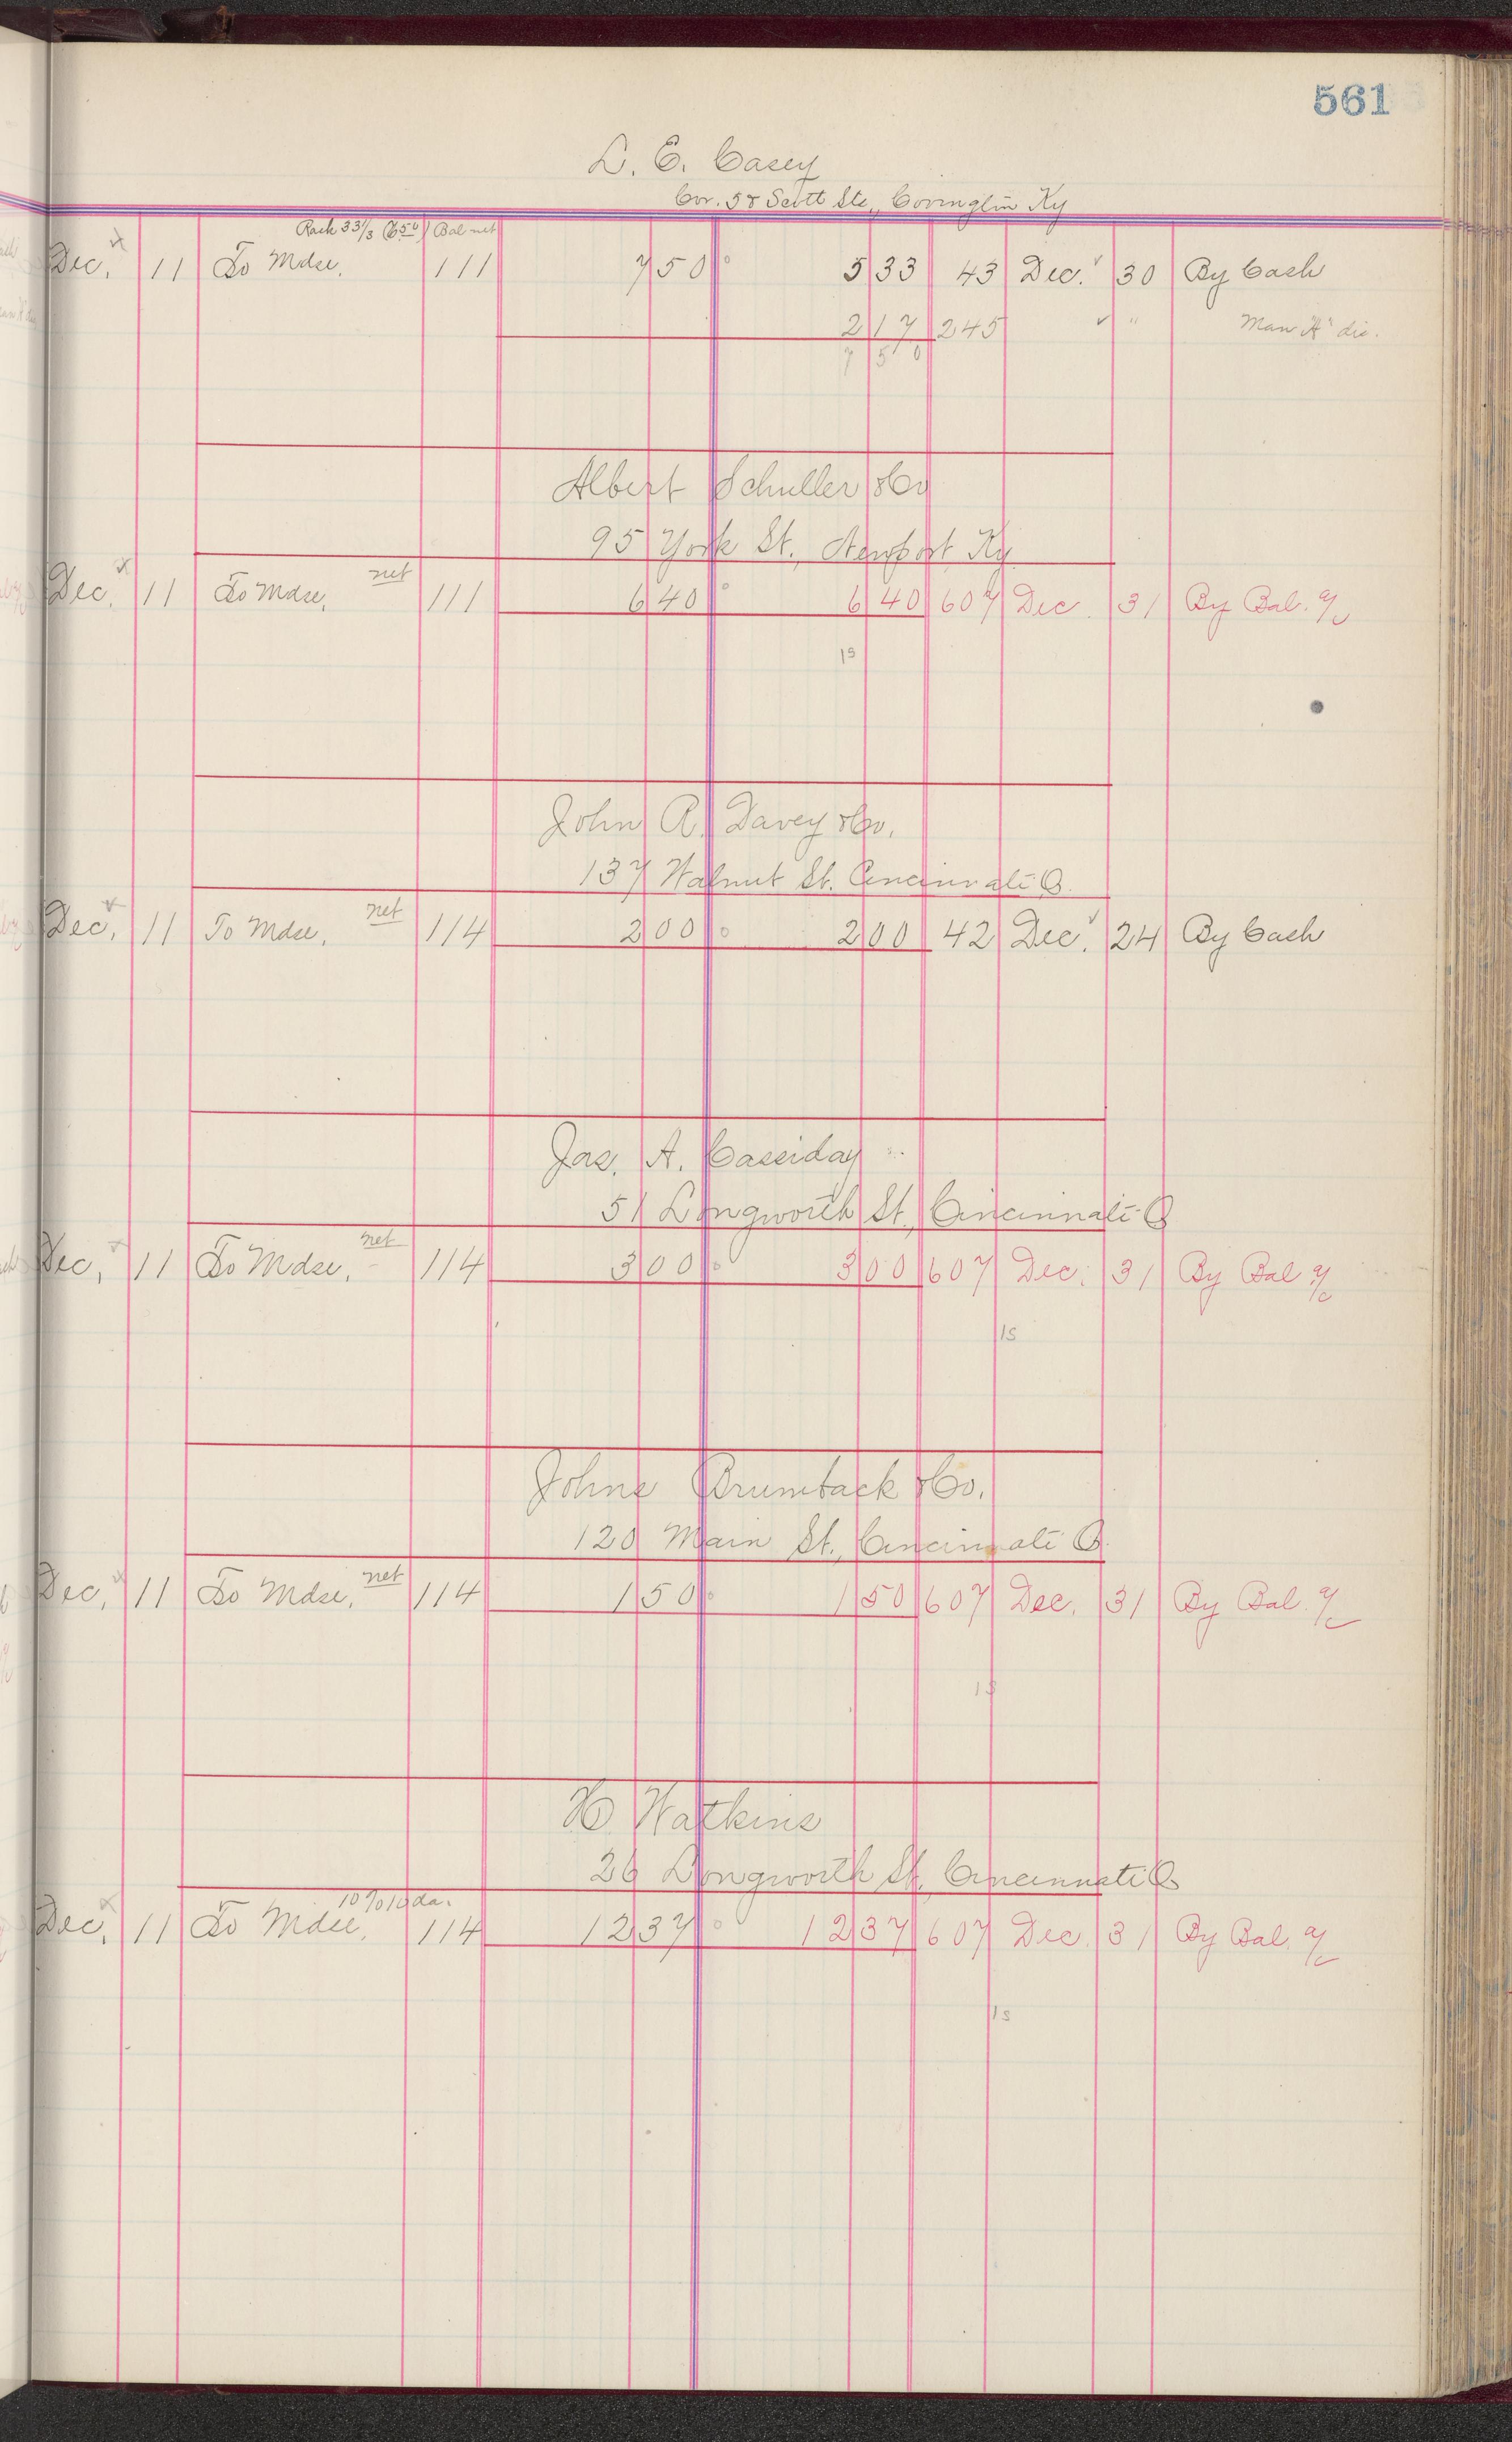 561
L. E. Casey
Cor. 5 & Scott Sts., Covington Ky
Rack 33 1/3 (6 50) Bal net
Dec. 11 To Mdse. 111 7 50 5 33 43 Dec. 30 By Cash
2 17 245 " Man "H" dis.
7 50
Albert Schuller & Co
95 York St., Newport Ky.
Dec. 11 To Mdse. net 111 6 40 6 40 607 Dec. 31 By Bal. a/c
1s
John R. Davey & Co.
137 Walnut St. Cincinnati O.
Dec. 11 To Mdse. net 114 2 00 2 00 42 Dec. 24 By Cash
Jas. A. Cassiday
51 Longworth St., Cincinnati O
Dec. 11 To Mdse. net 114 3 00 3 00 607 Dec. 31 By Bal a/c
1s
Johns Brumback & Co.
120 Main St., Cincinnati O.
Dec. 11 To Mdse. net 114 1 50 1 50 607 Dec. 31 By Bal. a/c
1s
H Watkins
26 Longworth St., Cincinnati O
10 % 10 da.
Dec. 11 To Mdse. 114 12 37 12 37 607 Dec. 31 By Bal. a/c
1s